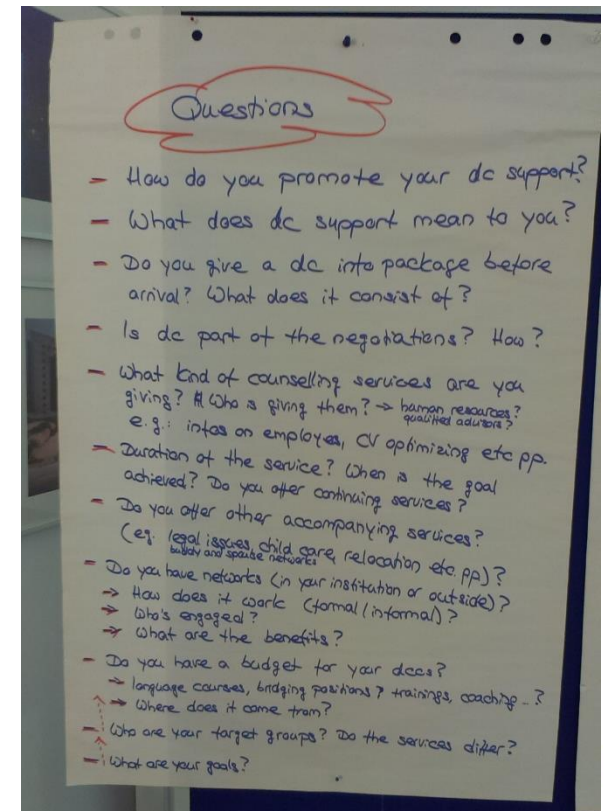 Questions
- How do you promote your dc support?
- What does dc support mean to you?
- Do you give a dc info package before
arrival? What does it consist of?
- Is dc part of the negotiations? How?
- What kind of counselling services are you
giving? Who is giving them? → human resources?
qualified advisors?
e.g.: infos on employes, CV optimizing etc pp.
- Duration of the service? When is the goal
achieved? Do you offer continuing services?
- Do you offer other accompanying services?
(eg. legal issues, child care, relocation etc. pp)?
buddy and spouse networks
- Do you have networks (in your institution or outside)?
→ How does it work (formal/informal)?
→ Who's engaged?
→ What are the benefits?
- Do you have a budget for your dccs?
→ language courses, bridging positions? trainings, coaching...?
→ Where does it come from?
- Who are your target groups? Do the services differ?
- What are your goals?